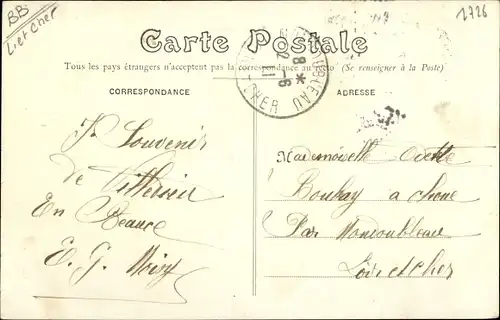 BB
Loir et Cher
2726
Carte Postale
Tous les pays étrangers n'acceptent pas la correspondance au recto. (Se renseigner à la Poste)
CORRESPONDANCE
ADRESSE
OUBLEAU
8 *
CHER
Souvenir
de
En Beauce
E. G.
Mademoiselle Odette
Bouhay a choue
Par Mondoubleau
Loir et cher